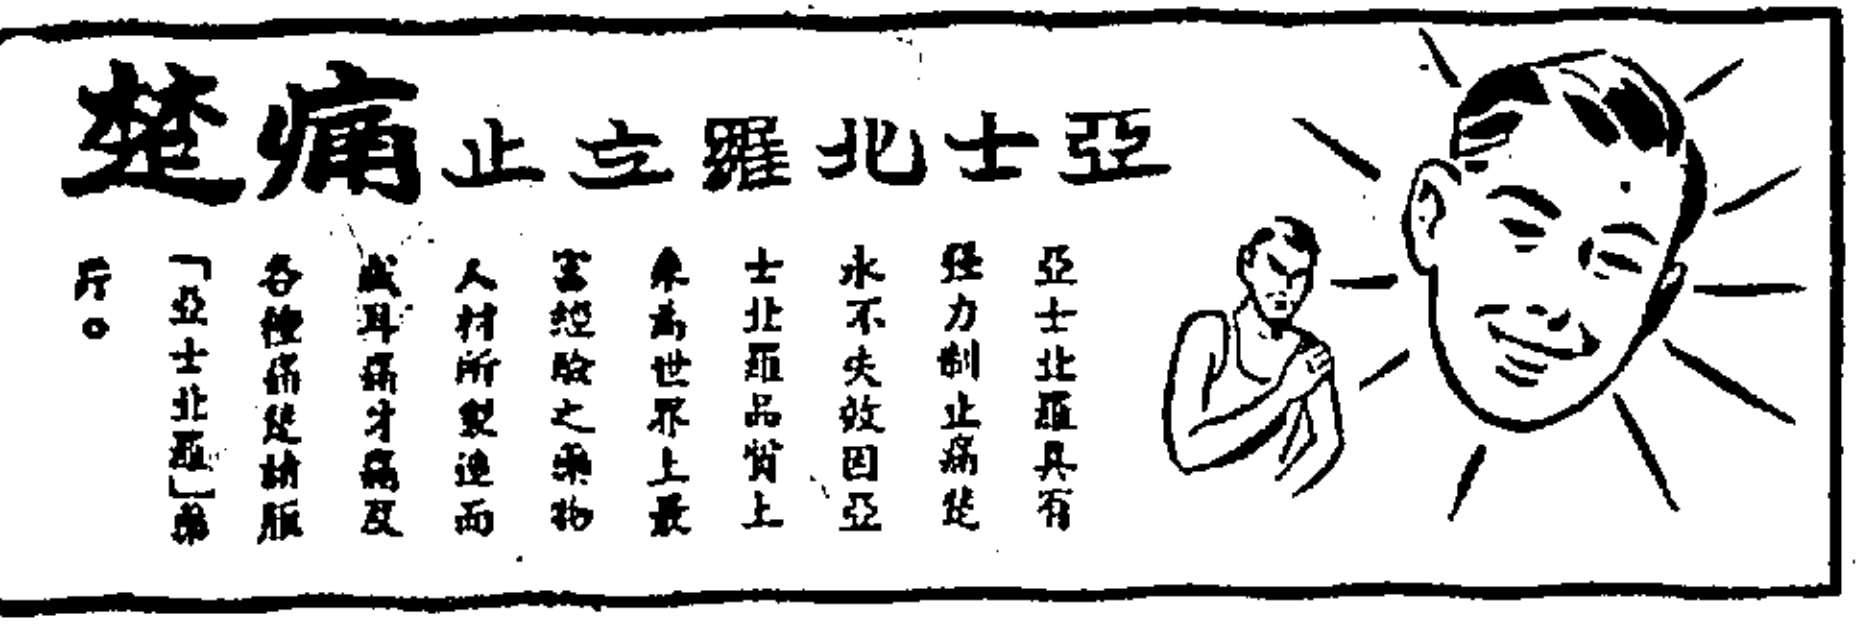 亞士北羅立止痛楚
亞士北羅具有
強力制止痛楚
永不失效因亞
士北羅品質上
乘為世界上最
富經驗之藥物
人材所製造而
成耳痛牙痛及
各種痛楚請服
「亞士北羅」藥
片。